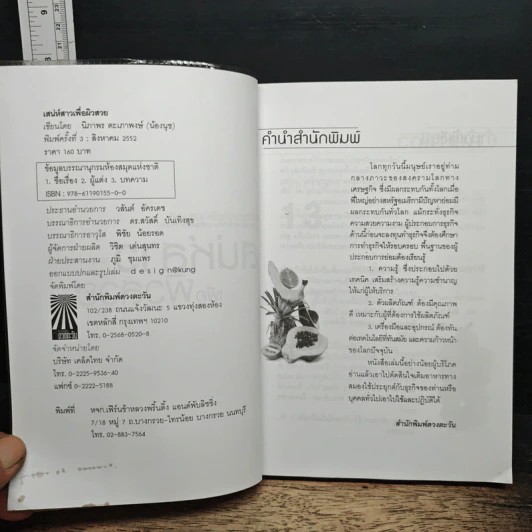 เสน่ห์สาวเพื่อผิวสวย
เขียนโดย นิภาพร ตะเภาพงษ์ (น้องนุช)
พิมพ์ครั้งที่ 3 : สิงหาคม 2552
ราคา 160 บาท
ข้อมูลบรรณานุกรมห้องสมุดแห่งชาติ
1. ชื่อเรื่อง 2. ผู้แต่ง 3. บทความ
ISBN : 978-61190155-0-0
ประธานอำนวยการ วสันต์ อัครเดช
บรรณาธิการอำนวยการ ดร.สวัสดิ์ บันเทิงสุข
บรรณาธิการอาวุโส พิชัย น้อยรอด
ผู้จัดการฝ่ายผลิต วิชิต เด่นสุนทร
ฝ่ายประสานงาน ภูมี ชุมแพร
ออกแบบปกและรูปเล่ม d e s i g n@kung
จัดพิมพ์โดย
สำนักพิมพ์ดวงตะวัน
102/238 ถนนแจ้งวัฒนะ 5 แขวงทุ่งสองห้อง
เขตหลักสี่ กรุงเทพฯ 10210
โทร. 0-2568-0520-8
จัดจำหน่ายโดย
บริษัท เคล็ดไทย จำกัด
โทร. 0-2225-9536-40
แฟกซ์ 0-2222-5188
พิมพ์ที่ หจก.เฟิร์นข้าหลวงพริ้นติ้ง แอนด์พับลิชชิ่ง
7/18 หมู่ 7 ถ.บางกรวย-ไทรน้อย บางกรวย นนทบุรี
โทร. 02-883-7564
คำนำสำนักพิมพ์
โลกทุกวันนี้มนุษย์เราอยู่ท่าม
กลางภาวะของสงครามโลกทาง
เศรษฐกิจ ซึ่งมีผลกระทบกันทั้งโลกเมื่อ
พี่ใหญ่อย่างสหรัฐอเมริกามีปัญหาย่อมมี
ผลกระทบกันทั่วโลก แม้กระทั่งธุรกิจ
ความสวยความงาม ผู้ประกอบการธุรกิจ
ด้านนี้ก่อนจะลงทุนทำธุรกิจจึงต้องศึกษา
การทำธุรกิจให้รอบครอบ พื้นฐานของผู้
ประกอบการย่อมต้องเรียนรู้
1. ความรู้ ซึ่งประกอบไปด้วย
เทคนิค เสริมสร้างความรู้ความชำนาญ
ให้แก่ผู้ให้บริการ
2. ตัวผลิตภัณฑ์ ต้องมีคุณภาพ
ดี เหมาะกับผู้ที่ต้องการใช้ผลิตภัณฑ์
3. เครื่องมือและอุปกรณ์ ต้องทัน
ต่อเทคโนโลยีที่ทันสมัย และความก้าวหน้า
ของโลกปัจจุบัน
หนังสือเล่มนี้อย่างน้อยผู้บริโภค
อ่านแล้วเอาไปตัดสินใจเติมอาหารทาง
สมองใช้ประยุกต์กับธุรกิจของท่านหรือ
บุคคลทั่วไปเอาไปใช้และปฏิบัติได้
สำนักพิมพ์ดวงตะวัน